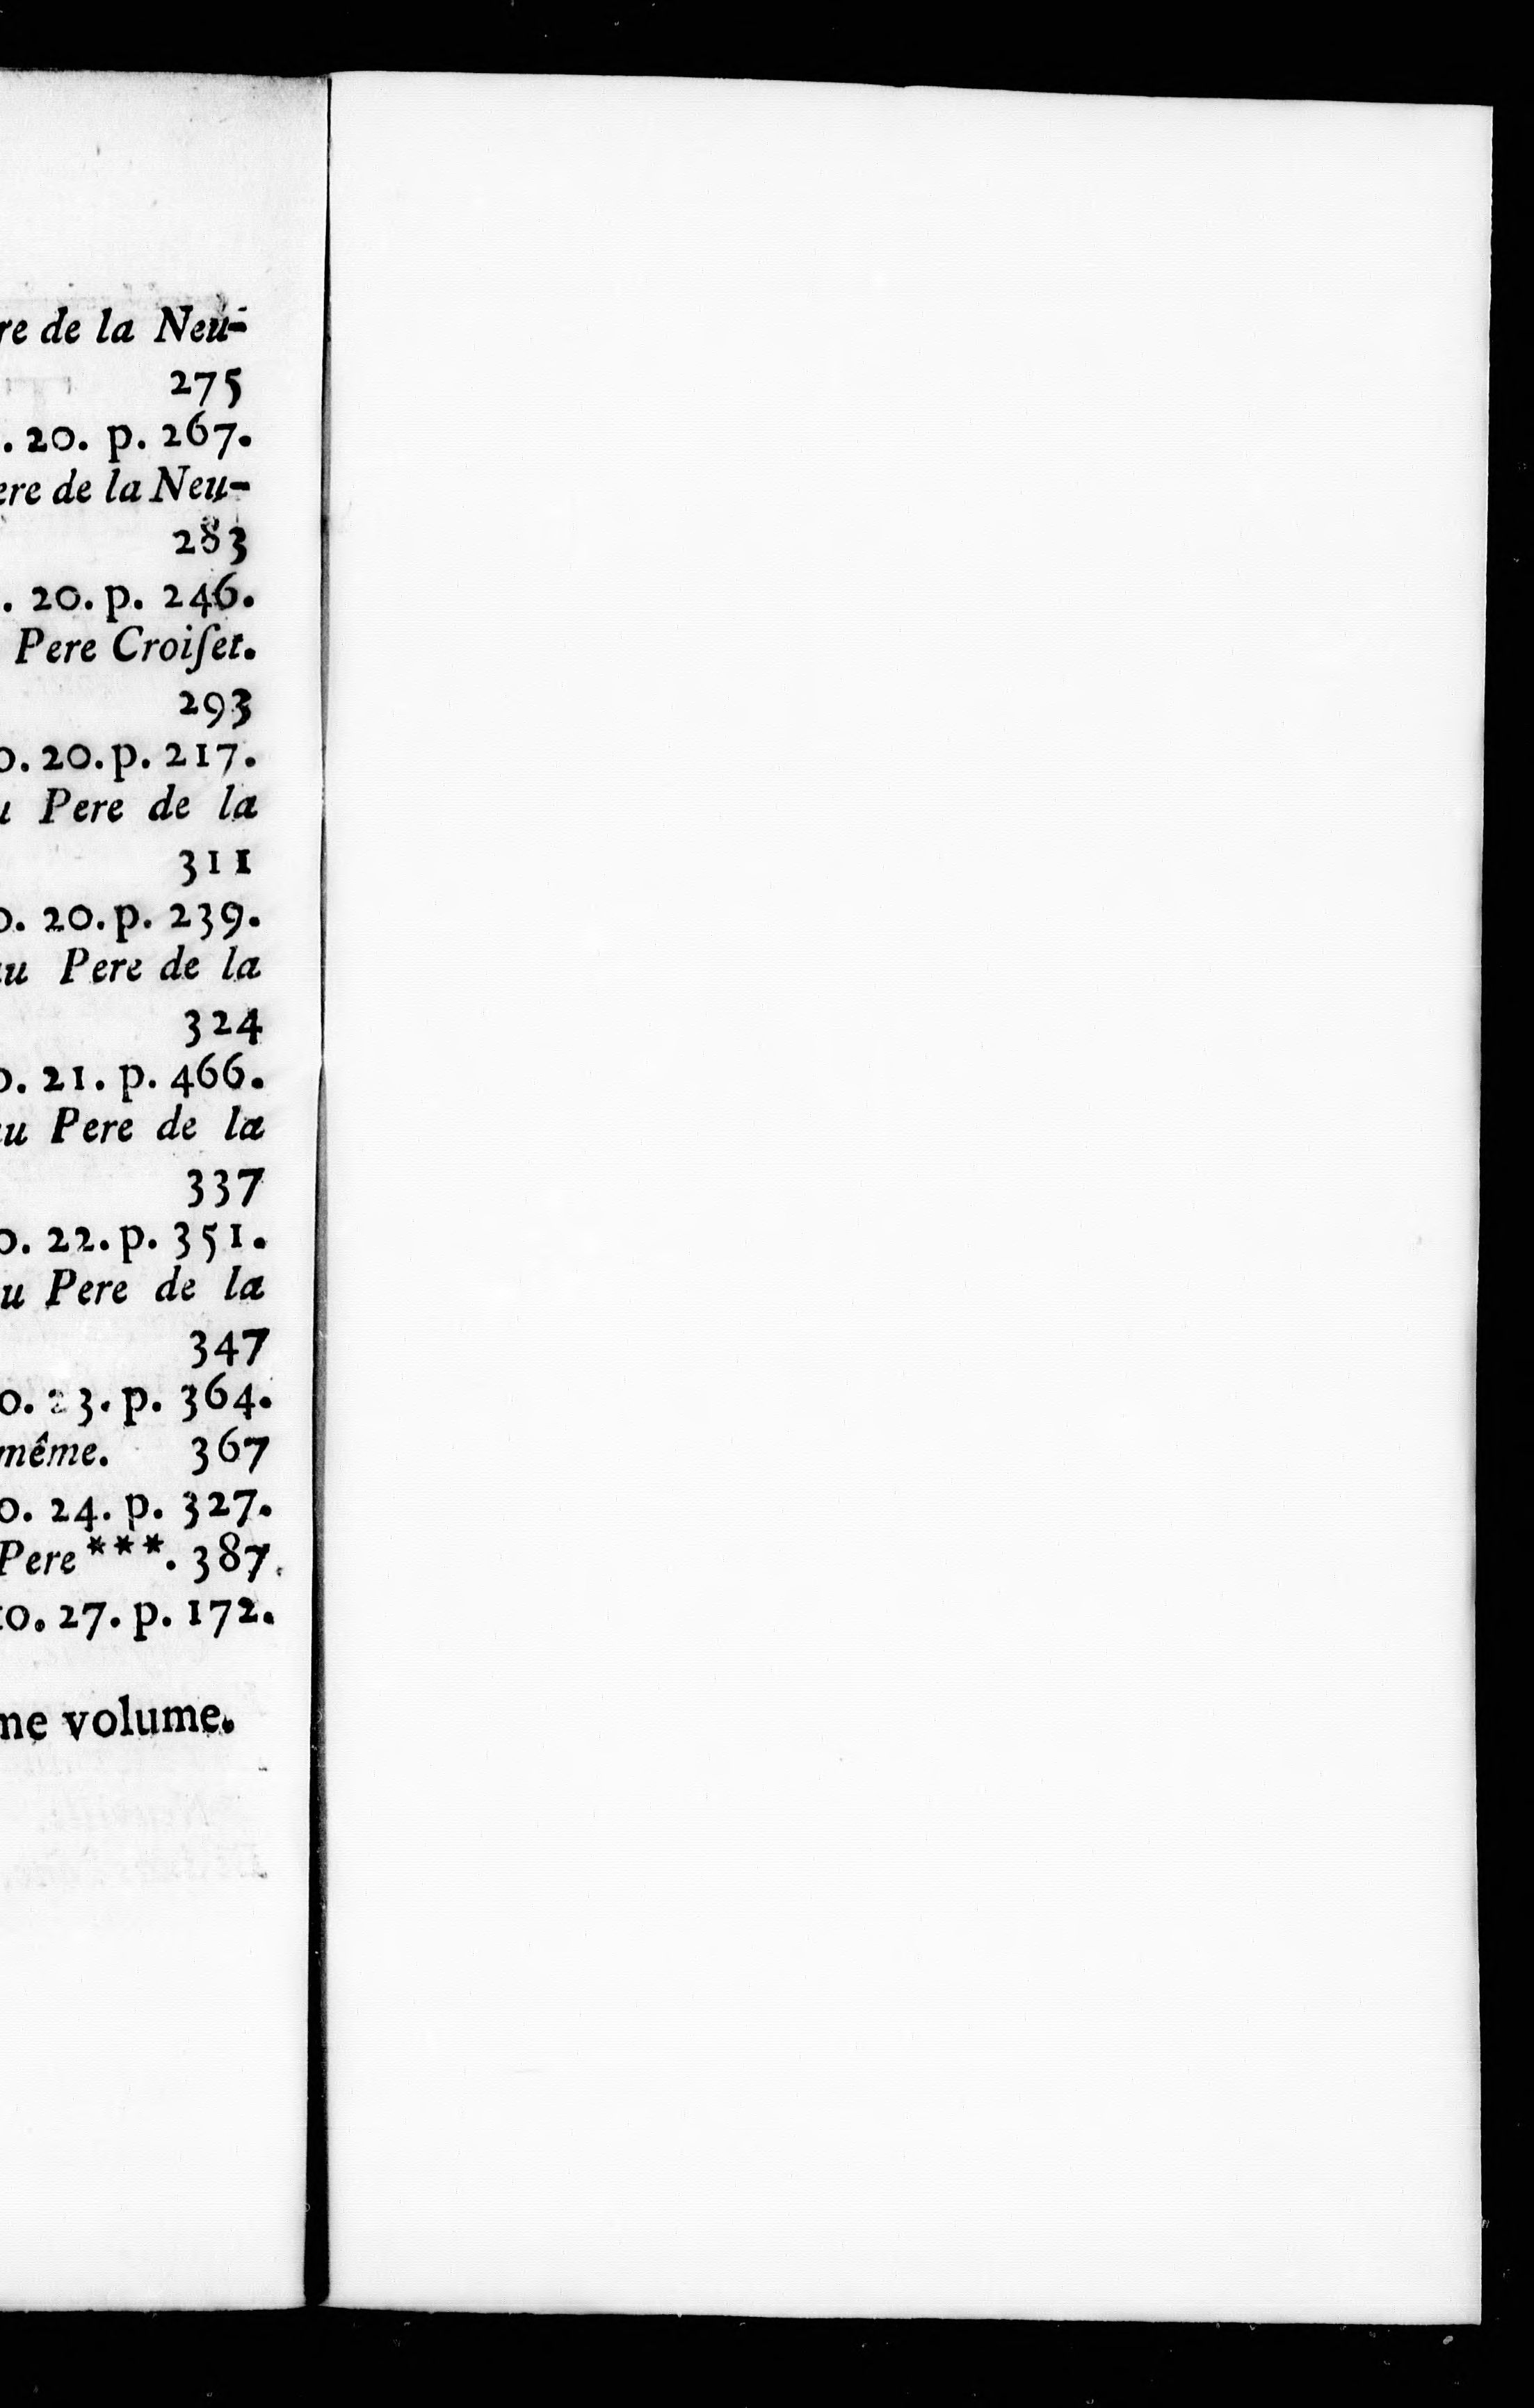 re de la Neu-
275
. 20. p. 267.
ere de la Neu-
283
. 20. p. 246.
Pere Croiſet.
293
o. 20. p. 217.
u Pere de la
311
o. 20. p. 239.
au Pere de la
324
o. 21. p. 466.
au Pere de la
337
o. 22. p. 351.
u Pere de la
347
o. 23. p. 364.
même. 367
o. 24. p. 327.
Pere ***. 387.
to. 27. p. 172.
me volume.